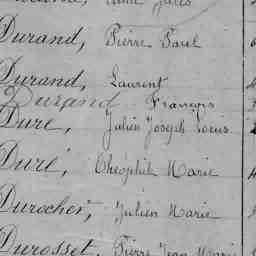 Aimé Jules
Durand, Pierre Paul
Durand, Laurent
Durand François
Duré, Julien Joseph Louis
Duré, Théophile Marie
Durocher, Julien Marie
Durosset, Pierre Jean Marie